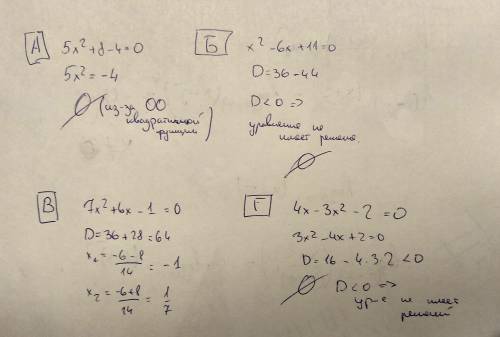 А
5x² + 8 - 4 = 0
5x² = -4
∅ (из-за ОО
квадратичной
функции)
Б
x² - 6x + 11 = 0
D = 36 - 44
D < 0 =>
уравнение не
имеет решения.
∅
В
7x² + 6x - 1 = 0
D = 36 + 28 = 64
x₁ = (-6 - 8)/14 = -1
x₂ = (-6 + 8)/14 = 1/7
Г
4x - 3x² - 2 = 0
3x² - 4x + 2 = 0
D = 16 - 4·3·2 < 0
∅ D < 0 =>
ур-е не имеет
решений